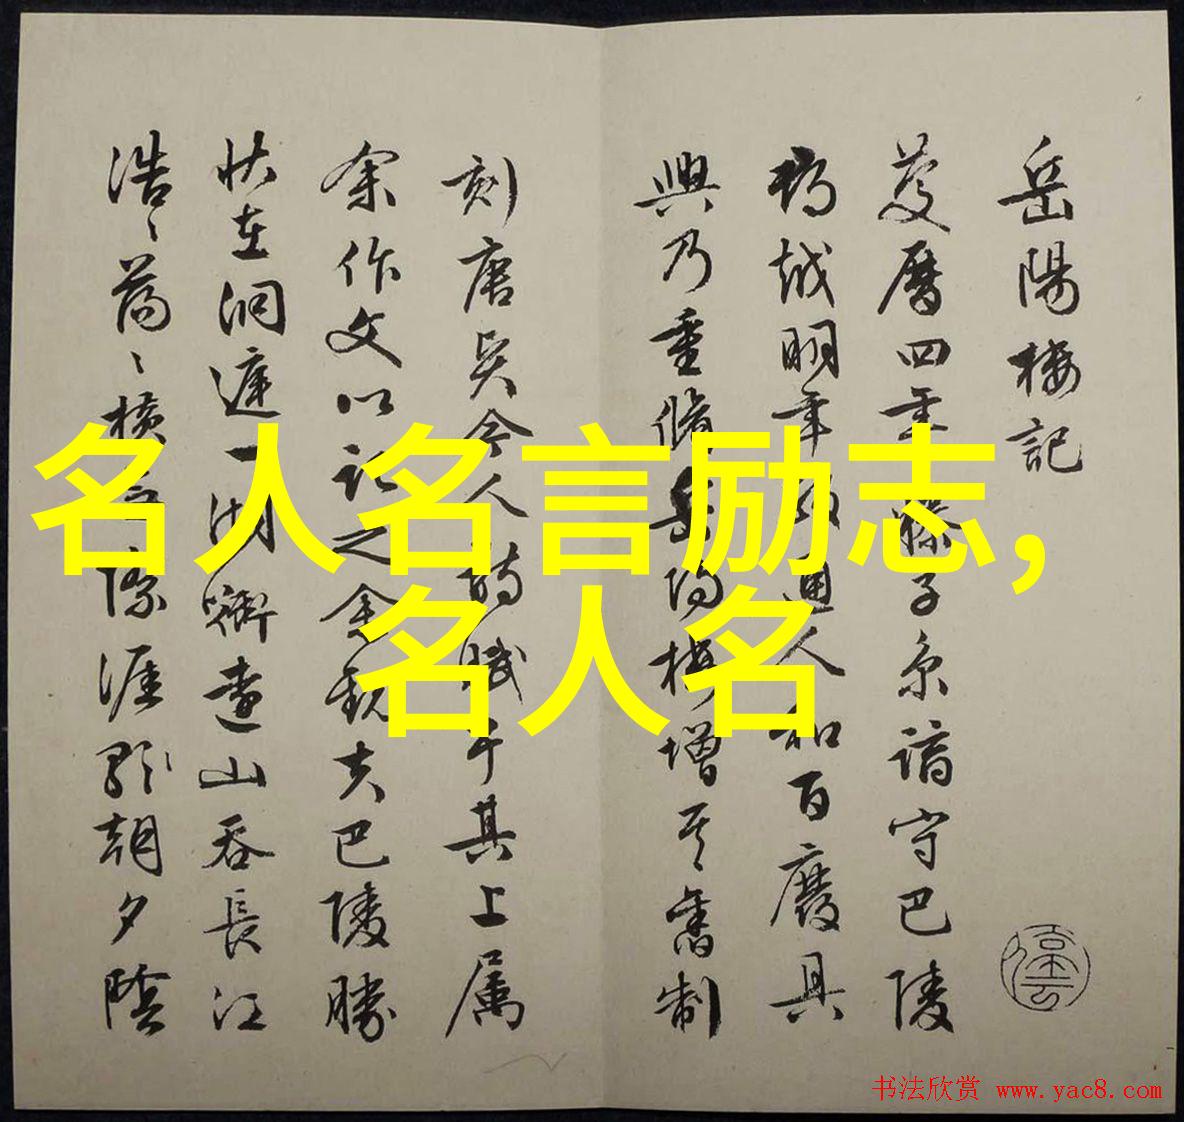 岳陽樓記
慶曆四年 滕子京謫守巴陵
郡越明年政通人和百廢具
興乃重脩岳陽樓增其舊制
刻唐賢今人詩賦于其上属
余作文以記之余觀夫巴陵勝
狀在洞庭一湖銜遠山吞長江
浩〻蕩〻橫無際涯朝夕陰
名人名言励志,
名人名
书法欣赏 www.yac8.com